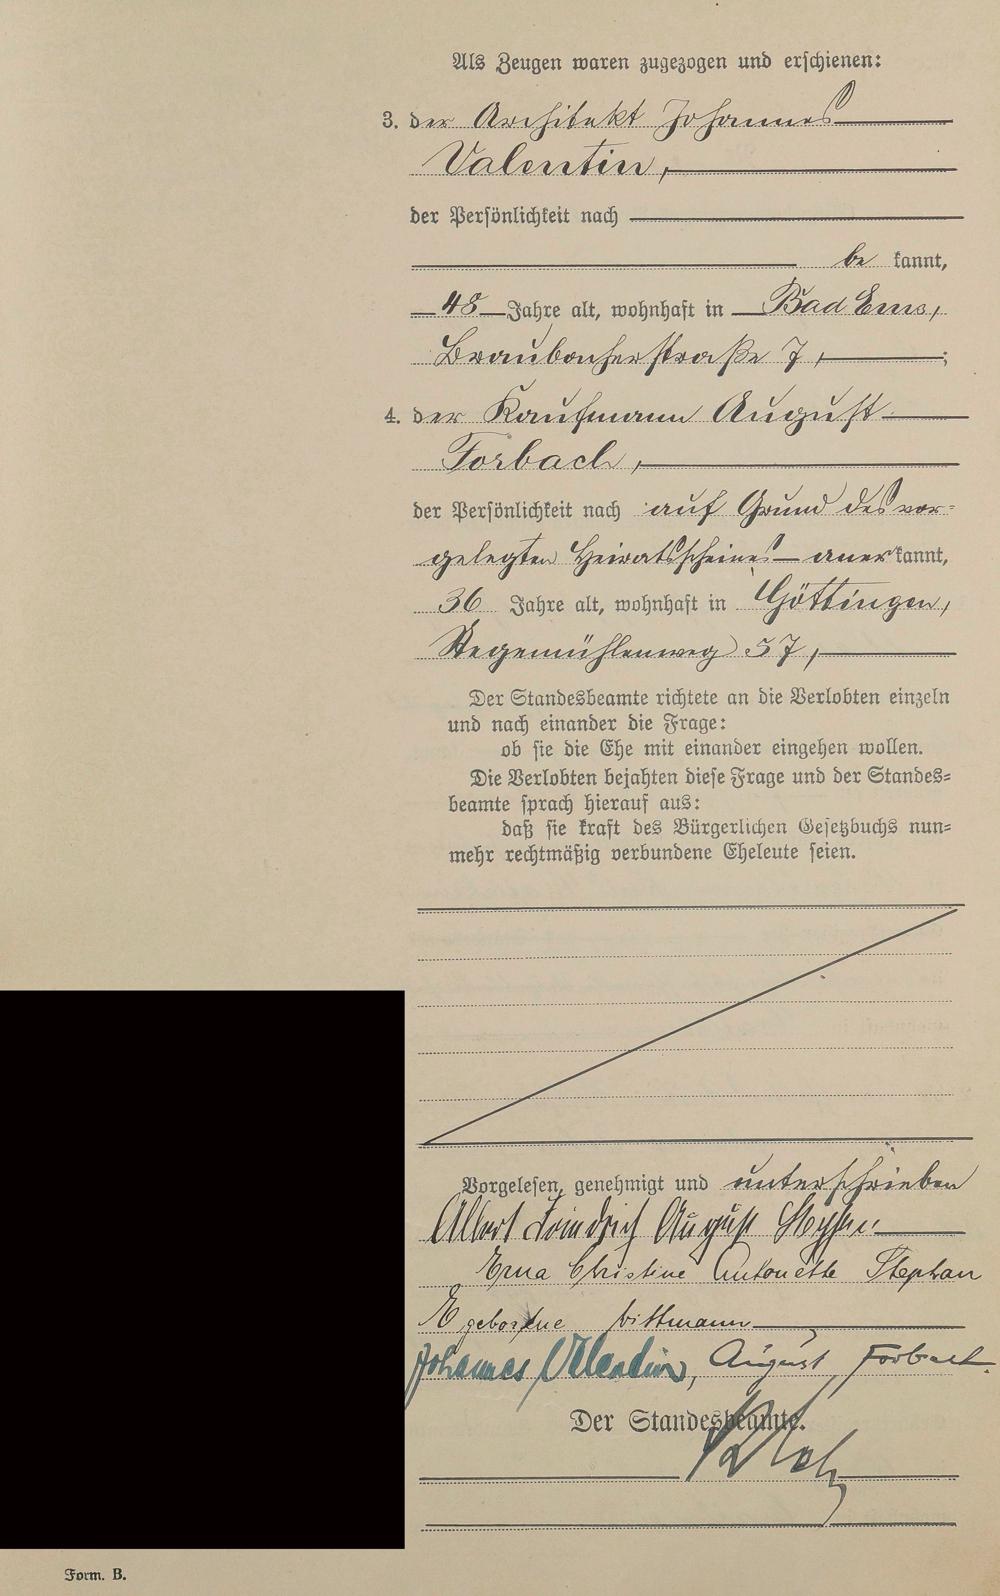 Als Zeugen waren zugezogen und erschienen:
3. der Architekt Johannes
Valentin,
der Persönlichkeit nach
be kannt,
48 Jahre alt, wohnhaft in Bad Ems,
Braubacherstraße 7, ;
4. der Kaufmann August
Forbach,
der Persönlichkeit nach auf Grund des vor-
gelegten Heiratsscheines — aner kannt,
36 Jahre alt, wohnhaft in Göttingen,
Stegemühlenweg 57,
Der Standesbeamte richtete an die Verlobten einzeln
und nach einander die Frage:
ob sie die Ehe mit einander eingehen wollen.
Die Verlobten bejahten diese Frage und der Standes=
beamte sprach hierauf aus:
daß sie kraft des Bürgerlichen Gesetzbuchs nun=
mehr rechtmäßig verbundene Eheleute seien.
Vorgelesen, genehmigt und unterschrieben
Albert Friedrich August Stephan
Erna Christine Antonette Stephan
geborene Wittmann
Johannes Valentin, August Forbach.
Der Standesbeamte.
Form. B.